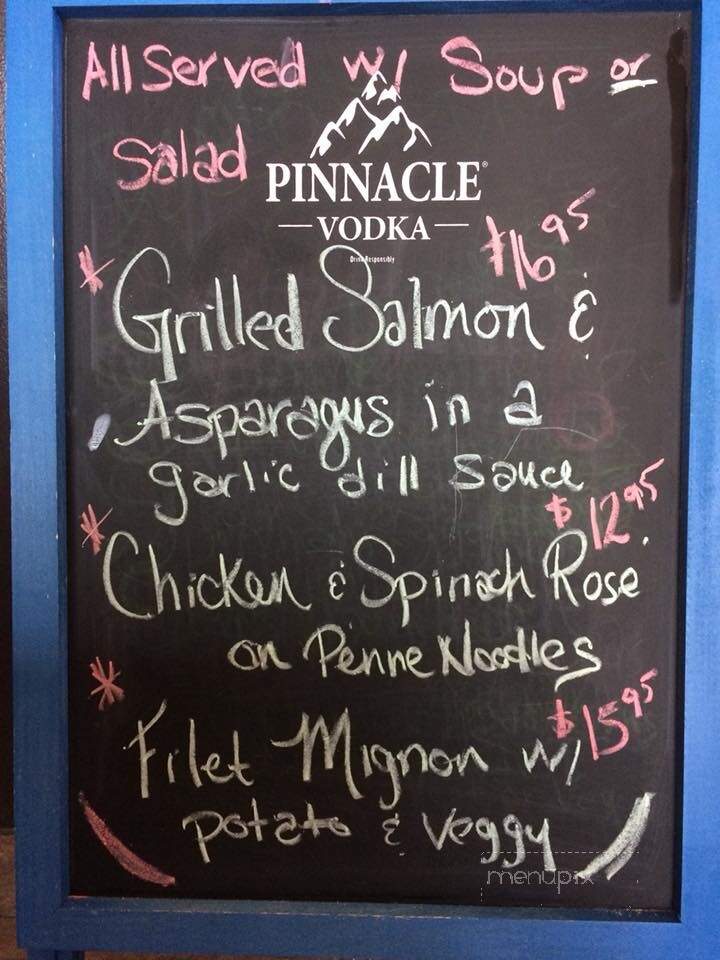 All Served w/ Soup or
Salad
PINNACLE®
VODKA
Drink Responsibly
$16.95
* Grilled Salmon &
Asparagus in a
garlic dill sauce
$12.95
* Chicken & Spinach Rosé
on Penne Noodles
* $15.95
Filet Mignon w/
potato & veggy
menupix